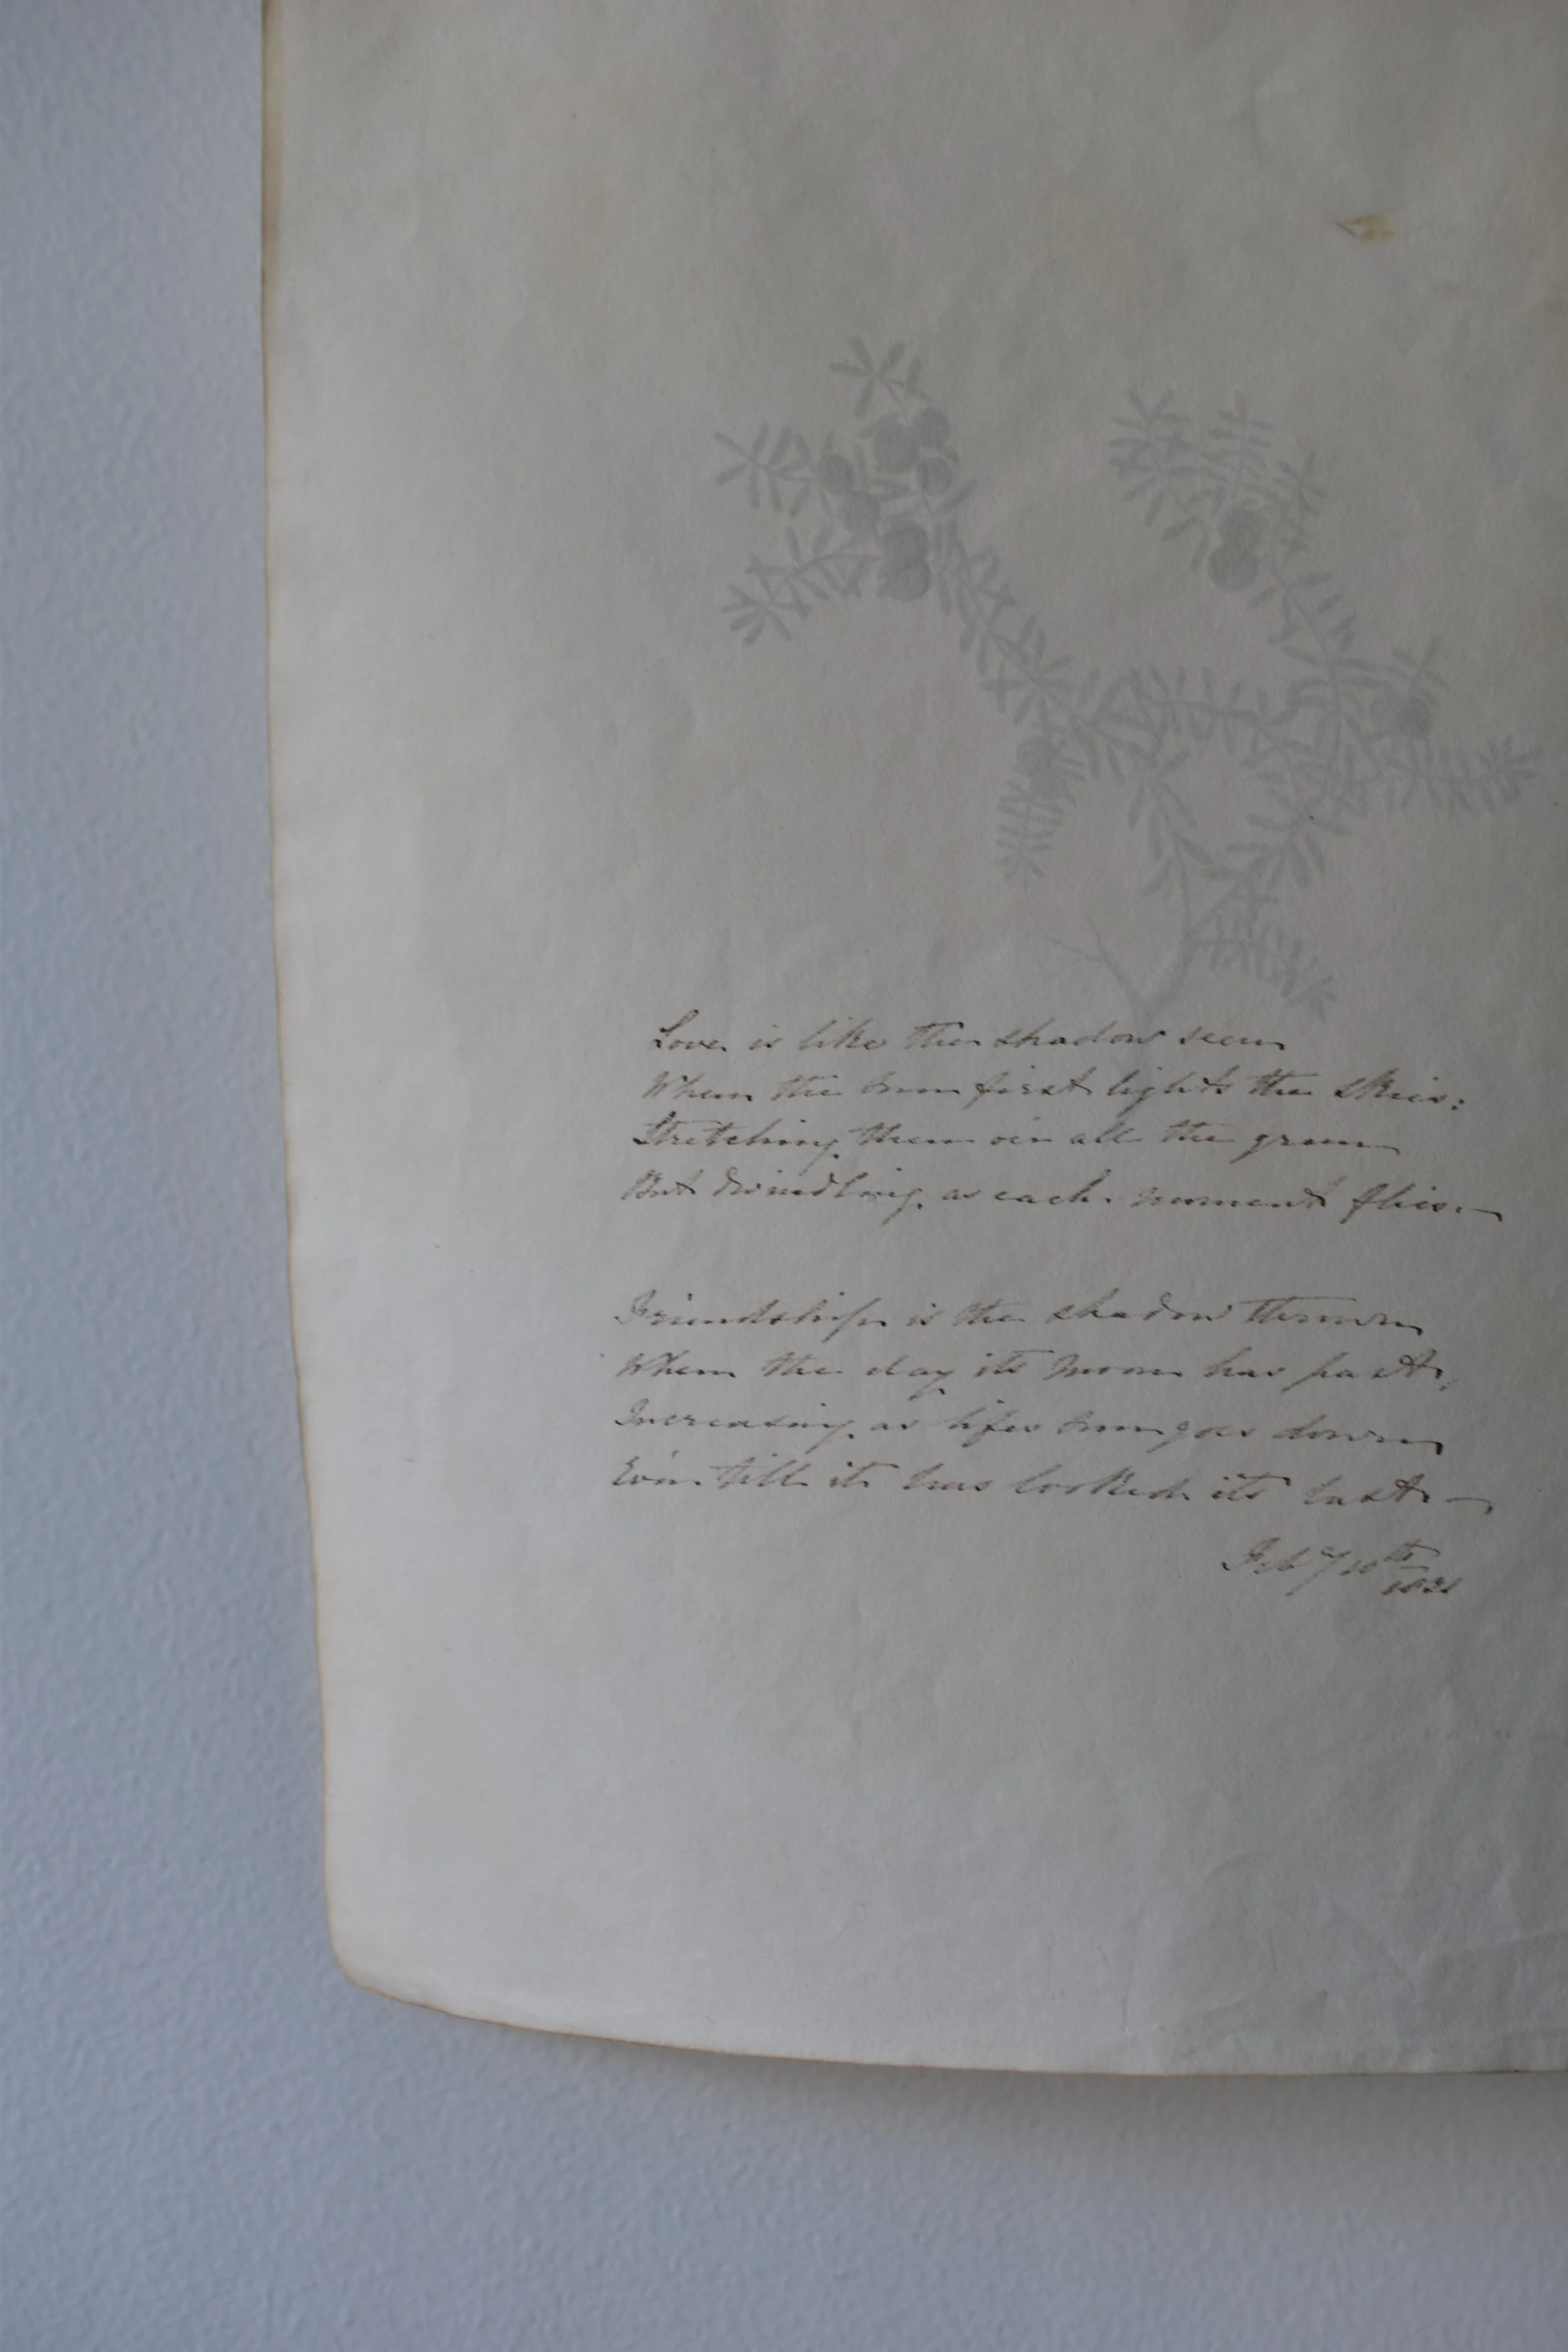 Love is like the shadow seen
When the sun first lights the skies:
Stretching then oer all the green
But dwindling as each moment flies. —
Friendship is the shadow thrown
When the day its noon has past,
Increasing as lifes sun goes down
Even till it has looked its last —
Feby 10th
1831